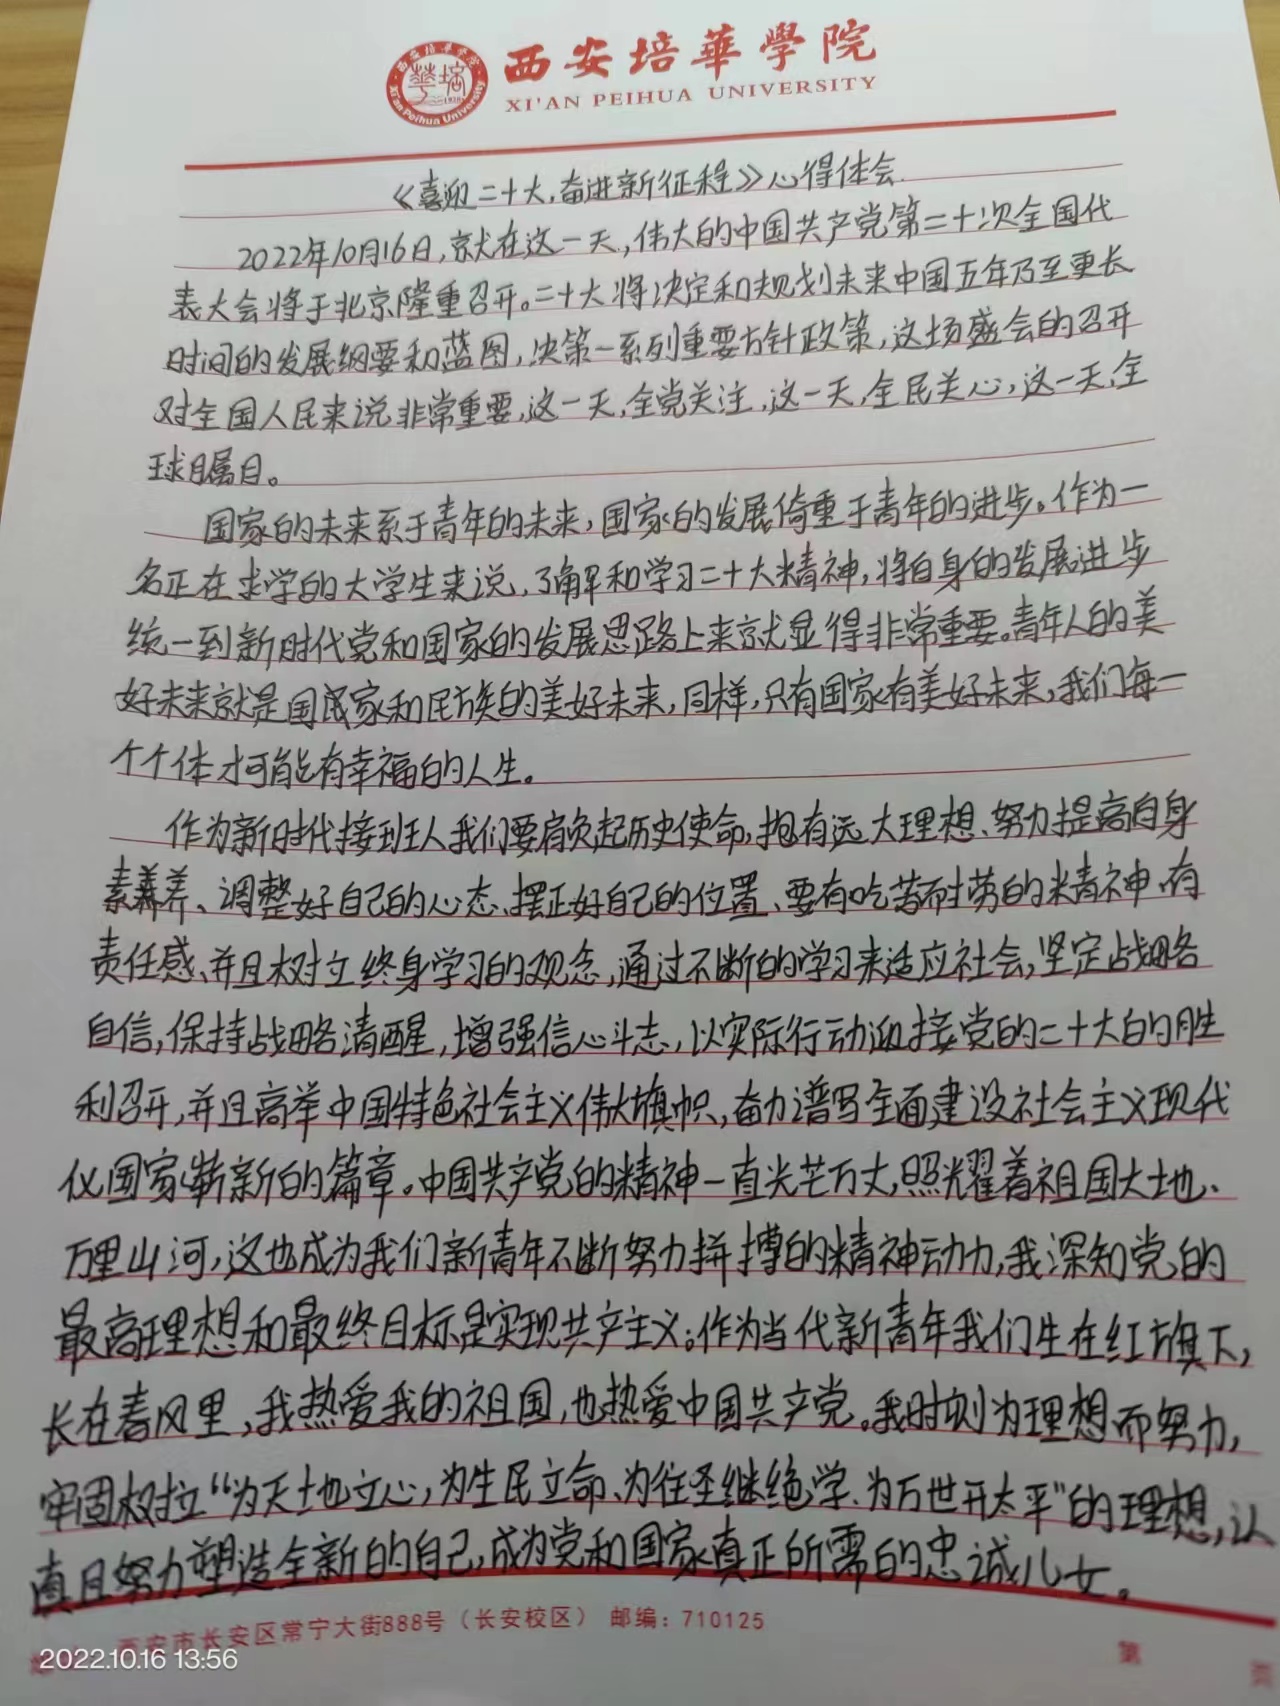 西安培華學院
XI'AN PEIHUA UNIVERSITY
《喜迎二十大,奋进新征程》心得体会.
2022年10月16日,就在这一天,伟大的中国共产党第二十次全国代
表大会将于北京隆重召开。二十大将决定和规划未来中国五年乃至更长
时间的发展纲要和蓝图,决策一系列重要方针政策,这场盛会的召开
对全国人民来说非常重要,这一天,全党关注,这一天,全民关心,这一天,全
球瞩目。
国家的未来系于青年的未来,国家的发展倚重于青年的进步。作为一
名正在求学的大学生来说,了解和学习二十大精神,将自身的发展进步
统一到新时代党和国家的发展思路上来就显得非常重要。青年人的美
好未来就是国家和民族的美好未来,同样,只有国家有美好未来,我们每一
个个体才可能有幸福的人生。
作为新时代接班人我们要肩负起历史使命,抱有远大理想、努力提高自身
素养、调整好自己的心态、摆正好自己的位置、要有吃苦耐劳的精神、有
责任感、并且树立终身学习的观念,通过不断的学习来适应社会,坚定战略
自信,保持战略清醒,增强信心斗志,以实际行动迎接党的二十大的胜
利召开,并且高举中国特色社会主义伟大旗帜,奋力谱写全面建设社会主义现代
化国家崭新的篇章。中国共产党的精神一直光芒万丈,照耀着祖国大地、
万里山河,这也成为我们新青年不断努力拼搏的精神动力,我深知党的
最高理想和最终目标是实现共产主义;作为当代新青年我们生在红旗下,
长在春风里,我热爱我的祖国,也热爱中国共产党。我时刻为理想而努力,
牢固树立“为天地立心,为生民立命、为往圣继绝学、为万世开太平”的理想,认
真且努力塑造全新的自己,成为党和国家真正所需的忠诚儿女。
西安市长安区常宁大街888号(长安校区) 邮编:710125
第 页
2022.10.16 13:56